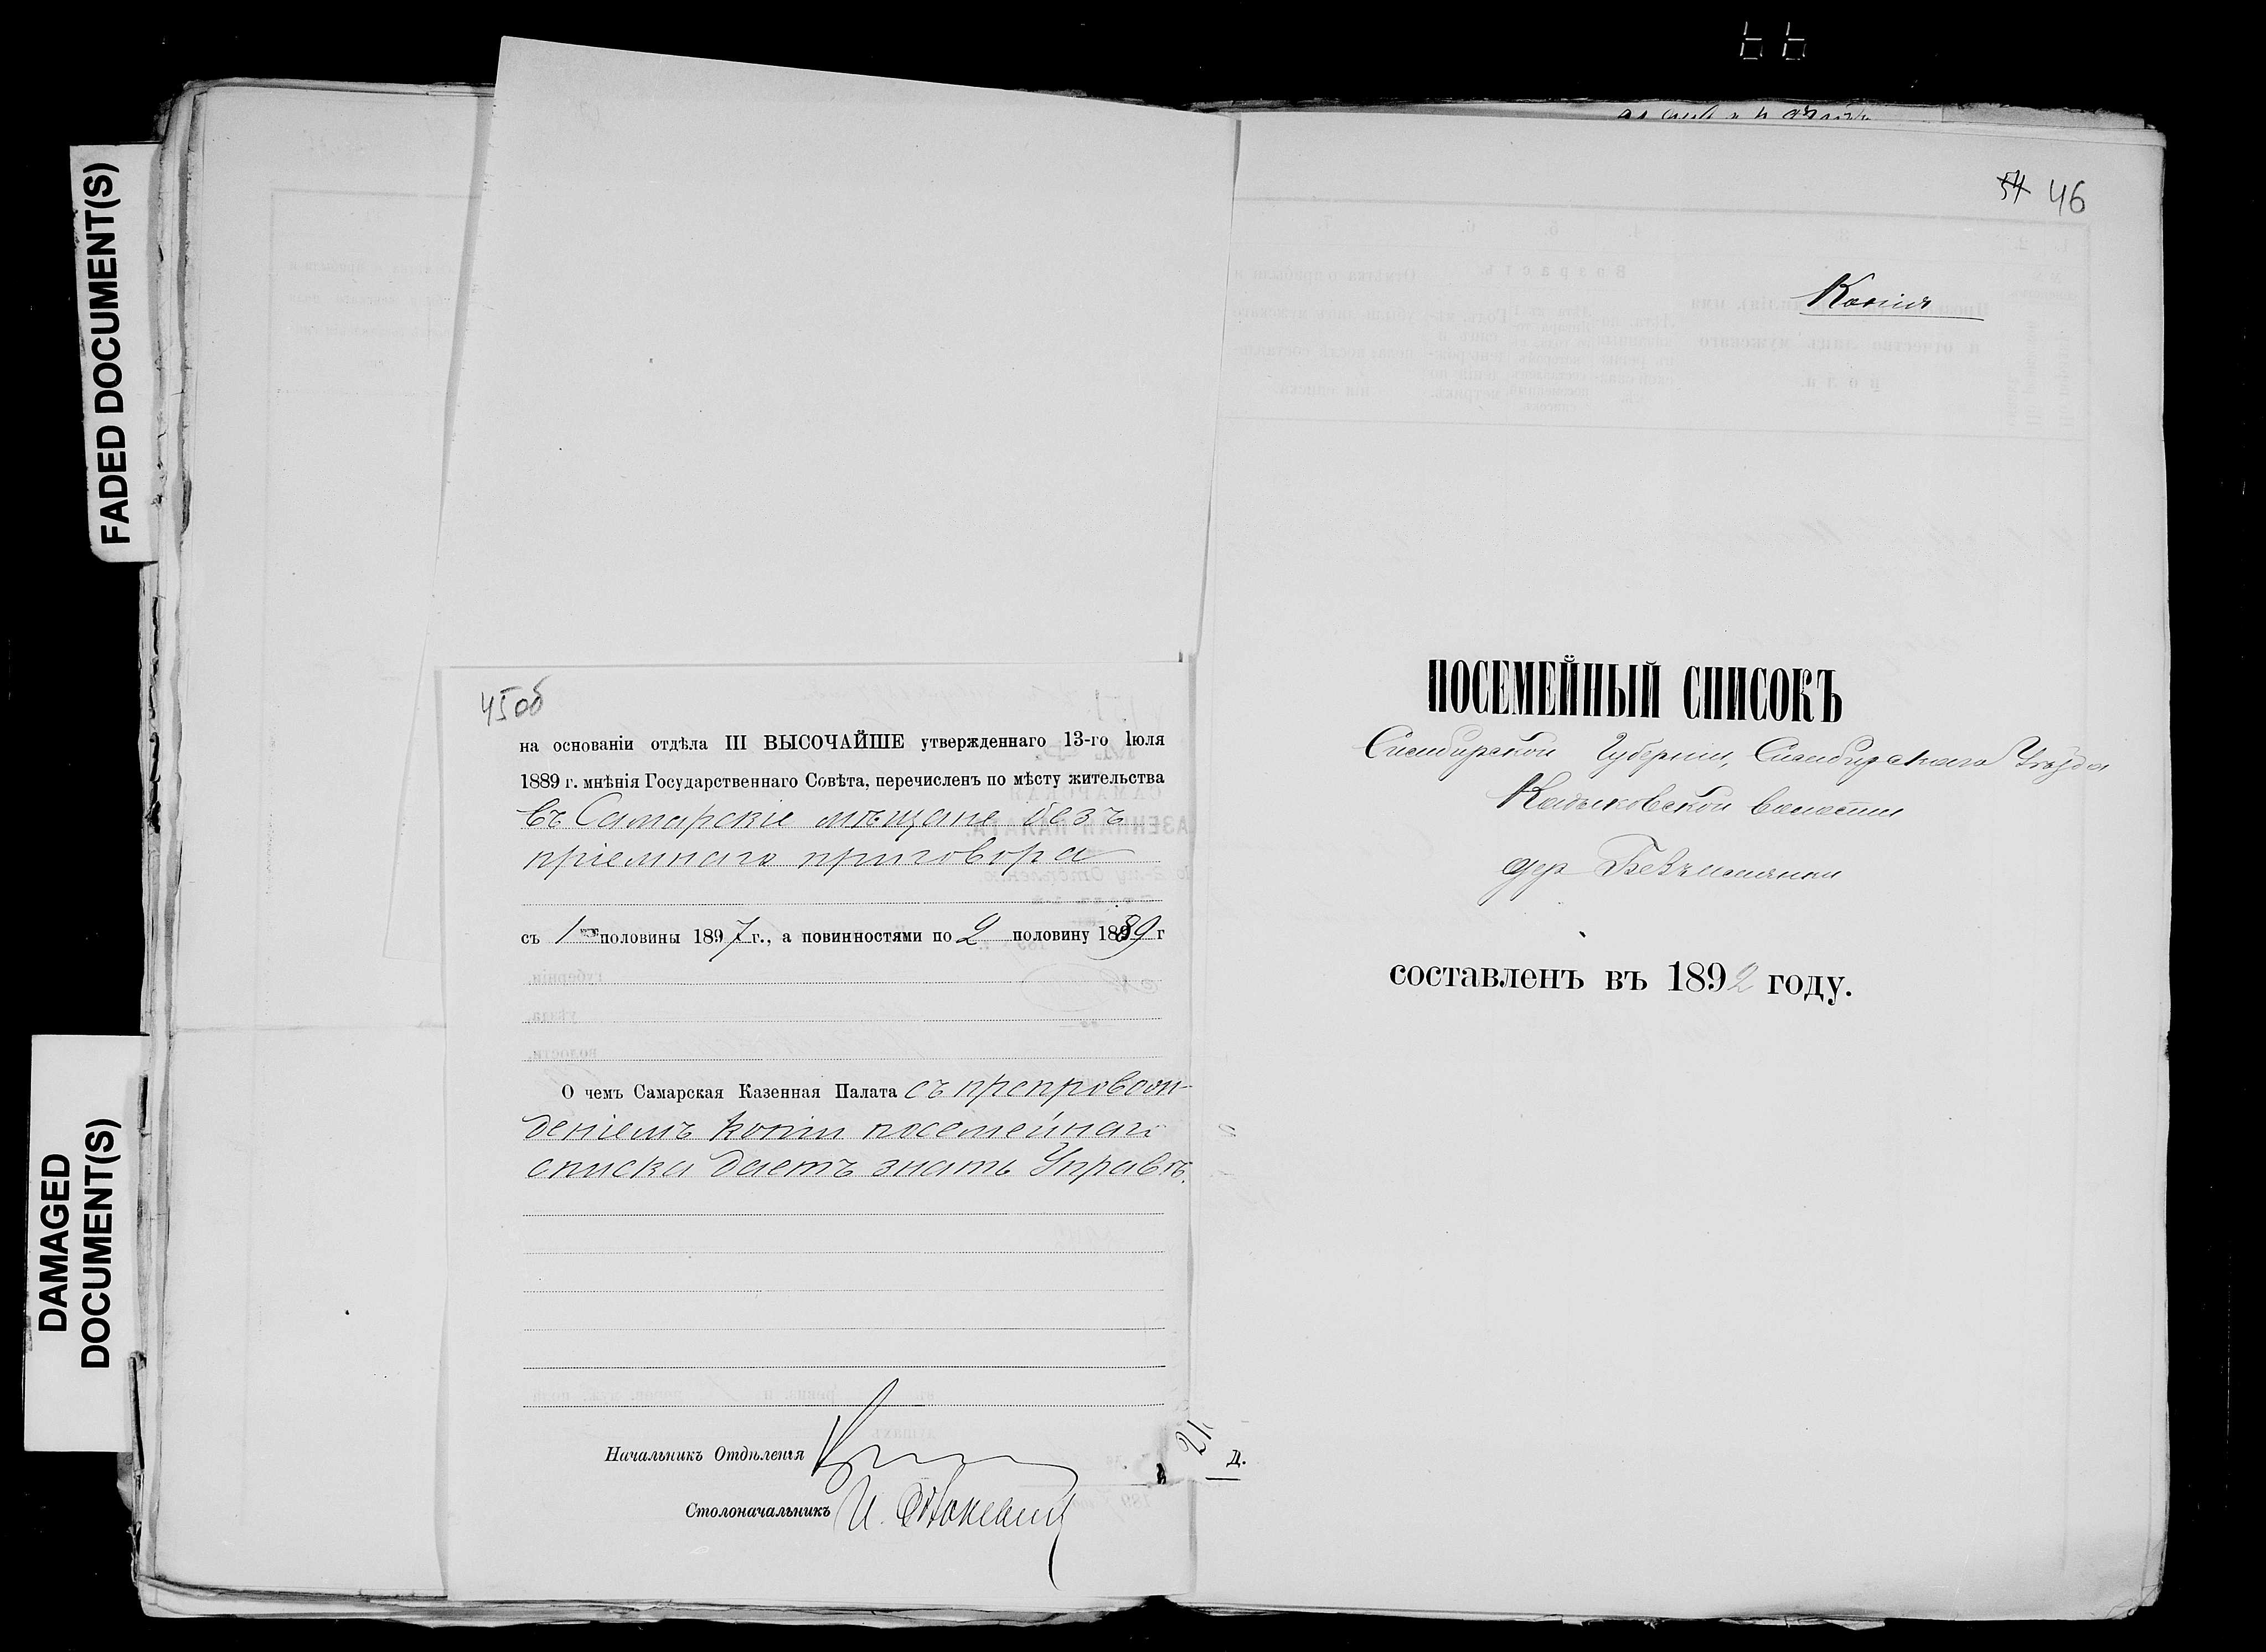 FADED DOCUMENT(S)
DAMAGED
DOCUMENT(S)
45 об
на основаніи отдѣла III ВЫСОЧАЙШЕ утвержденнаго 13-го Іюля
1889 г. мнѣнія Государственнаго Совѣта, перечисленъ по мѣсту жительства
въ Самарскіе мѣщане безъ
пріемнаго приговора
съ 1 половины 1897 г., а повинностями по 2 половину 1889 г
О чемъ Самарская Казенная Палата съ препровож-
деніемъ копіи посемейнаго
списка даетъ знать Управѣ.
Начальникъ Отдѣленія
Столоначальникъ И.
21
Д.
54 46
Копія
ПОСЕМЕЙНЫЙ СПИСОКЪ
Симбирской Губерніи, Симбирскаго Уѣзда
волости
дер
составленъ въ 1892 году.